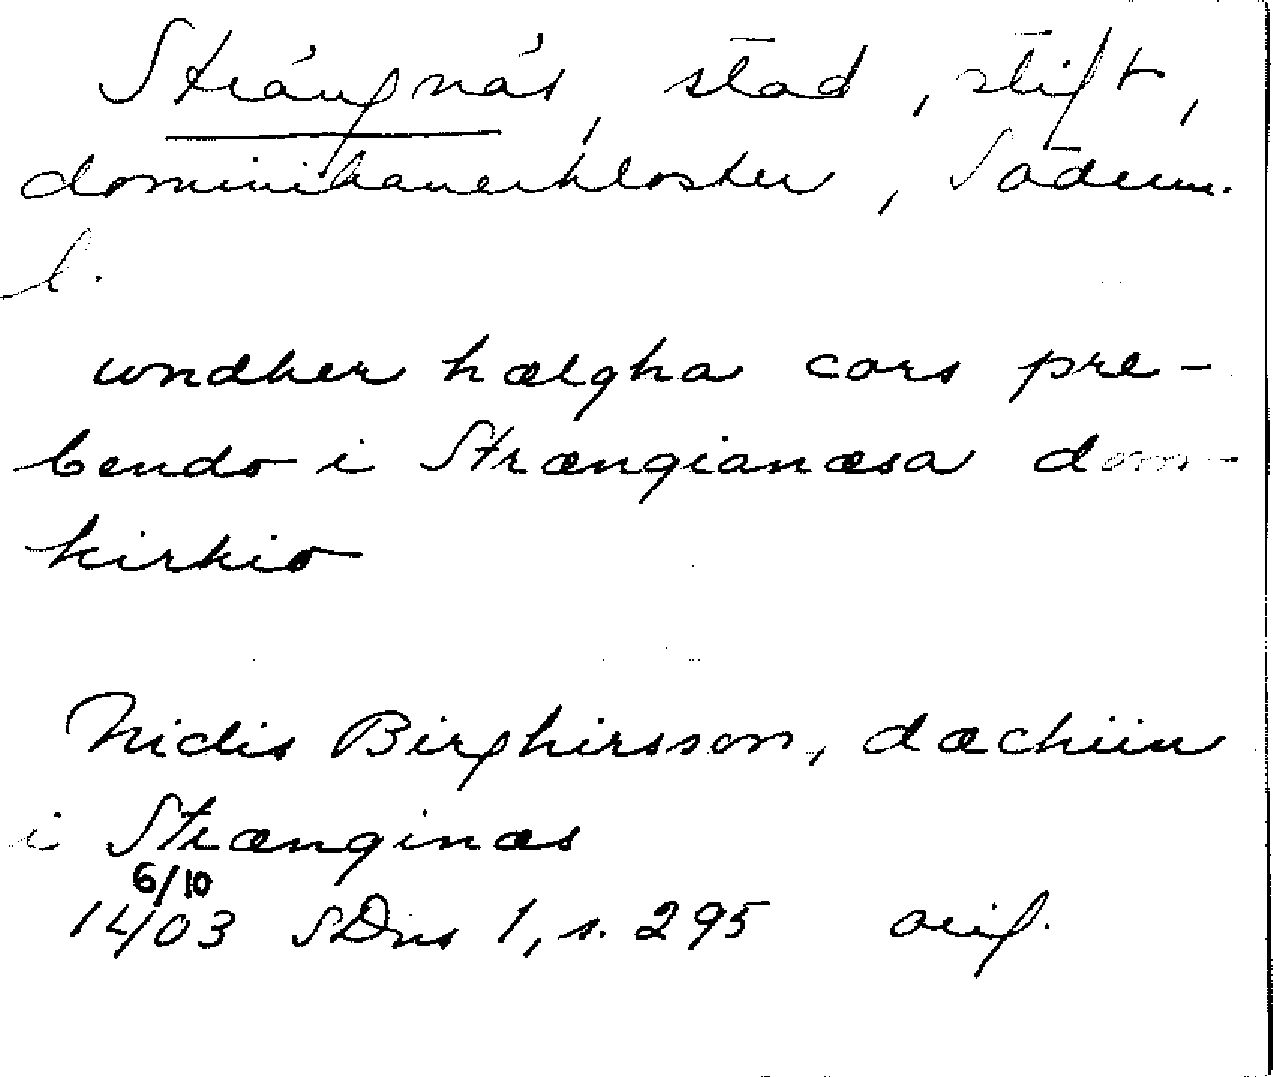 Strängnäs, stad, stift,
dominikanerkloster, Söderm.
l.
wndher hælgha cors pre-
bendo i Strængianæsa dom-
kirkio
Niclis Birghirsson, dæchiin
i Strænginæs
6/10
1403 SDns 1, s. 295 orig.